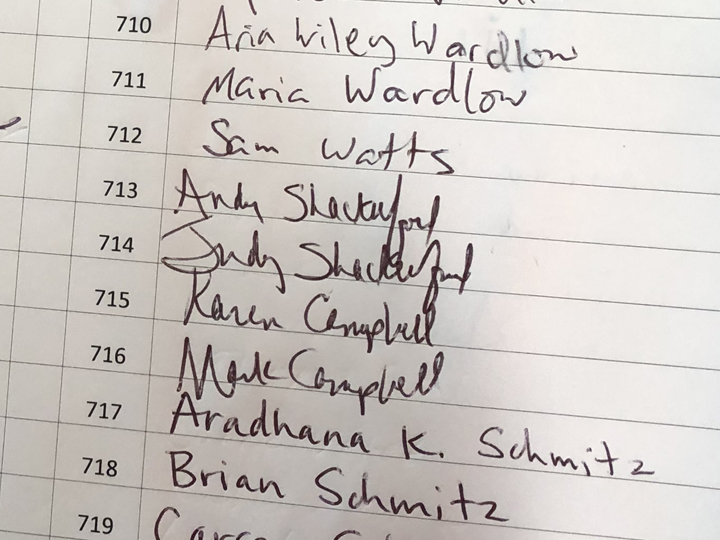 710 Aria Wiley Wardlow
711 Maria Wardlow
712 Sam Watts
713 Andy Shackelford
714 Judy Shackelford
715 Karen Campbell
716 Mark Campbell
717 Aradhana K. Schmitz
718 Brian Schmitz
719